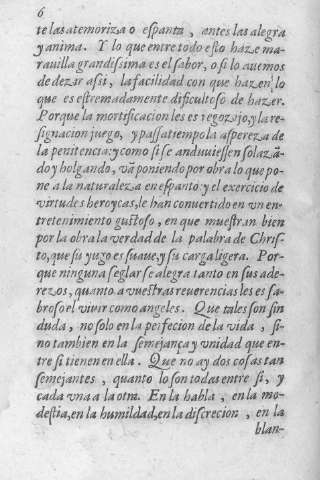 6
te las atemoriza o espanta, antes las alegra
y anima. Y lo que entre todo esto haze ma-
rauilla grandissima es el sabor, o si lo auemos
de dezir assi, la facilidad con que hazen, lo
que es estremadamente dificultoso de hazer.
Porque la mortificacion les es regozijo, y la re-
signacion juego, y passatiempo la aspereza de
la penitencia: y como si se anduuiessen solazã-
do y holgando, vã poniendo por obra lo que po-
ne a la naturaleza en espanto: y el exercicio de
virtudes heroycas, le han conuertido en vn en-
tretenimiento gustoso, en que muestran bien
por la obra la verdad de la palabra de Chris-
to, que su yugo es suaue, y su carga ligera. Por-
que ninguna seglar se alegra tanto en sus ade-
reços, quanto a vuestras reuerencias les es sa-
broso el viuir como angeles. Que tales son sin
duda, no solo en la perfecion de la vida, si-
no tambien en la semejança y vnidad que en-
tre si tienen en ella. Que no ay dos cosas tan
semejantes, quanto lo son todas entre si, y
cada vna a la otra. En la habla, en la mo-
destia, en la humildad, en la discrecion, en la
blan-